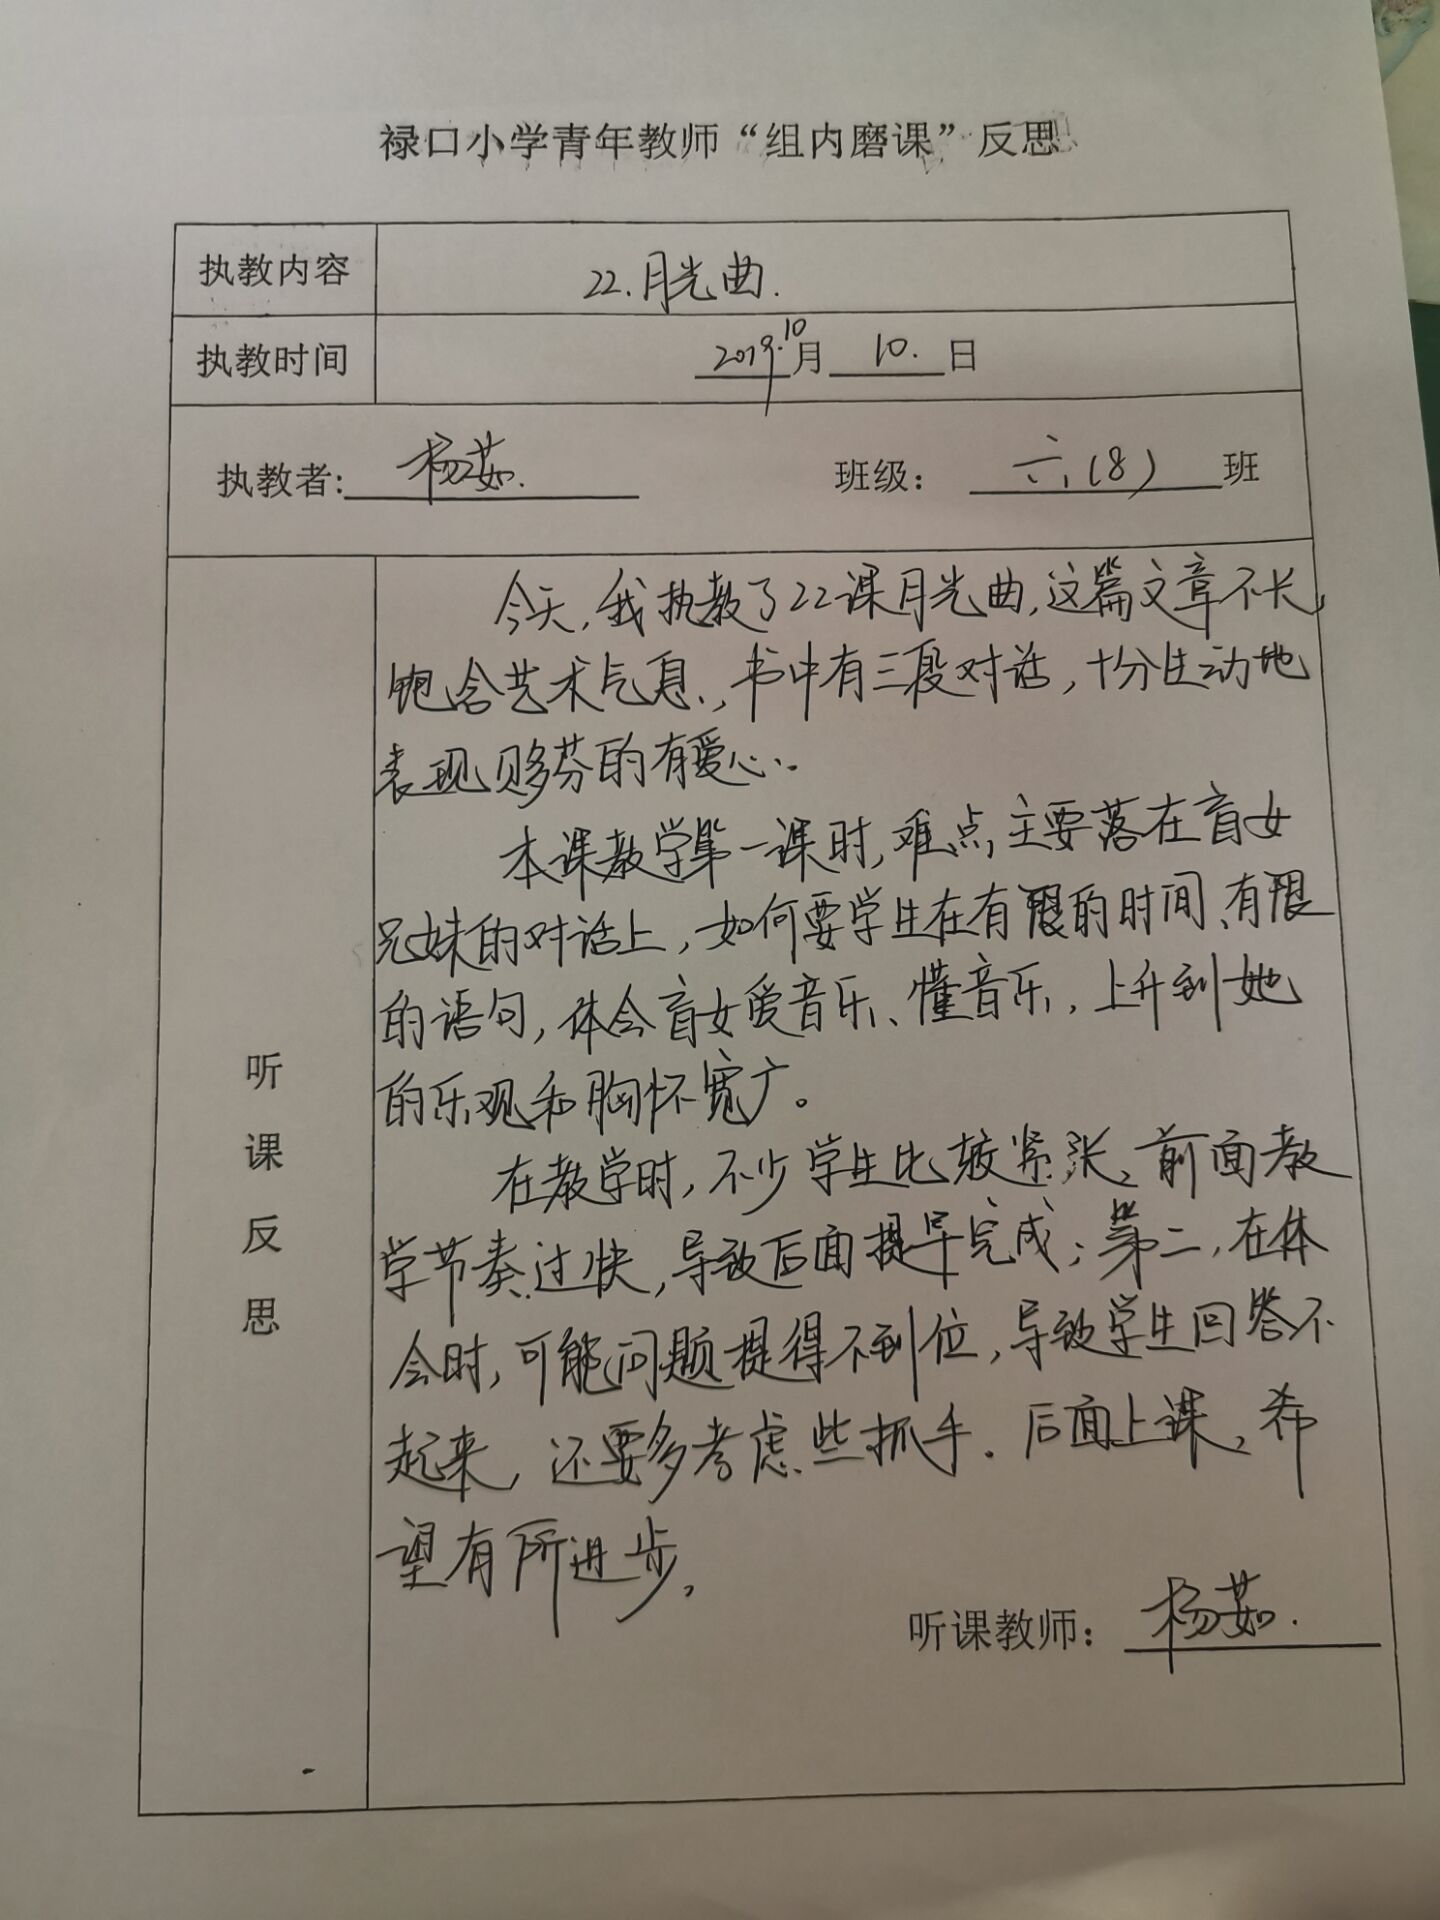 禄口小学青年教师“组内磨课”反思
执教内容 22.月光曲.
执教时间 2019.10月 10. 日
执教者: 杨茹. 班级: 六(8) 班
今天,我执教了22课月光曲,这篇文章不长,
饱含艺术气息,书中有三段对话,十分生动地
表现贝多芬的有爱心.
本课教学第一课时,难点主要落在盲女
兄妹的对话上,如何要学生在有限的时间、有限
的语句,体会盲女爱音乐、懂音乐,上升到她
的乐观和胸怀宽广。
在教学时,不少学生比较紧张,前面教
学节奏过快,导致后面提早完成;第二,在体
会时,可能问题提得不到位,导致学生回答不
起来,还要多考虑些抓手.后面上课,希
望有所进步,
听课反思
听课教师: 杨茹.